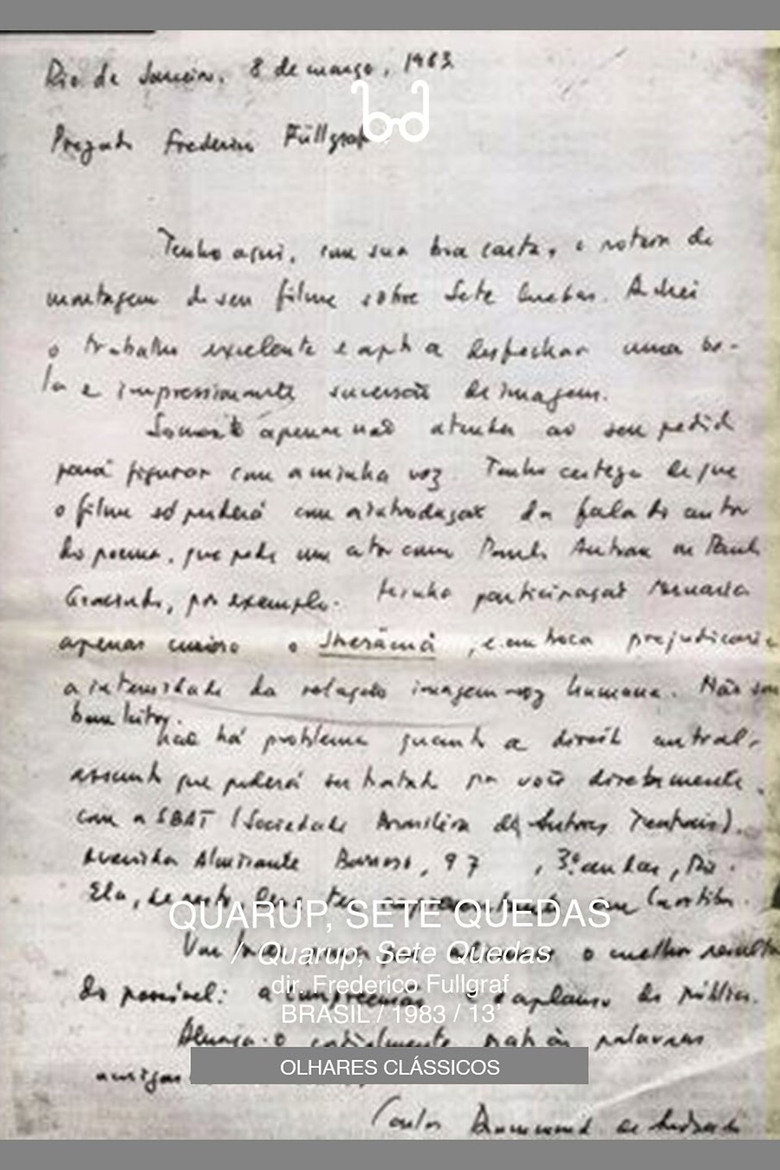 Rio de Janeiro, 8 de março, 1983
bd
Prezado Frederico Füllgraf
Tenho aqui, com sua boa carta, o roteiro de
montagem de seu filme sobre Sete Quedas. Achei
o trabalho excelente e apto a desfechar uma be-
la e impressionante sucessão de imagens.
apenas não atender ao seu pedido
para figurar com a minha voz. Tenho certeza de que
o filme só perderá com a introdução da fala do autor
do poema, que pede um ator como Paulo Autran ou Paulo
Gracindo, por exemplo. Minha participação
apenas o , e em troca prejudicaria
a intensidade da relação imagem-voz humana. Não sou
bom leitor.
Não há problema quanto a direito autoral,
assunto que poderá ser tratado por você diretamente
com a SBAT (Sociedade Brasileira de Autores Teatrais),
Avenida Almirante Barroso, 97 , 3º andar, Rio.
Ela, de certo, deve ter em Curitiba.
QUARUP, SETE QUEDAS
o melhor resultado
/ Quarup, Sete Quedas
dir. Frederico Fullgraf
do possível: a compreensão e o aplauso do público.
BRASIL / 1983 / 13'
Abraça-o cordialmente, grato às palavras
amigas
OLHARES CLÁSSICOS
Carlos Drummond de Andrade